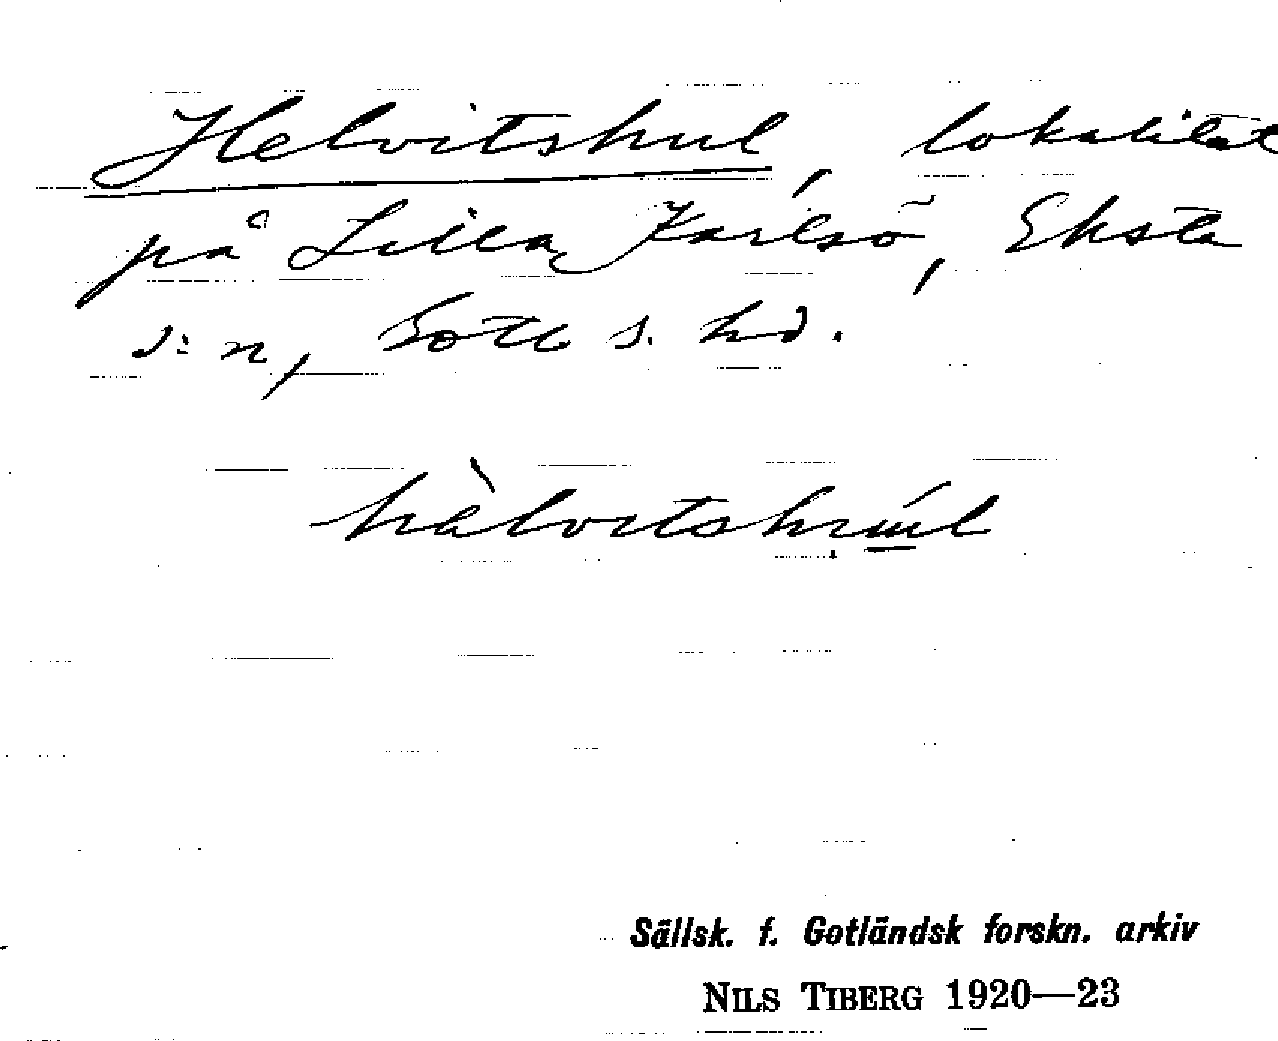 Helvitshul, lokalitet
på Lilla Karlsö, Eksta
s:n, Gotl s. hd.
hàlvitshu̱ĺ
Sällsk. f. Gotländsk forskn. arkiv
NILS TIBERG 1920—23